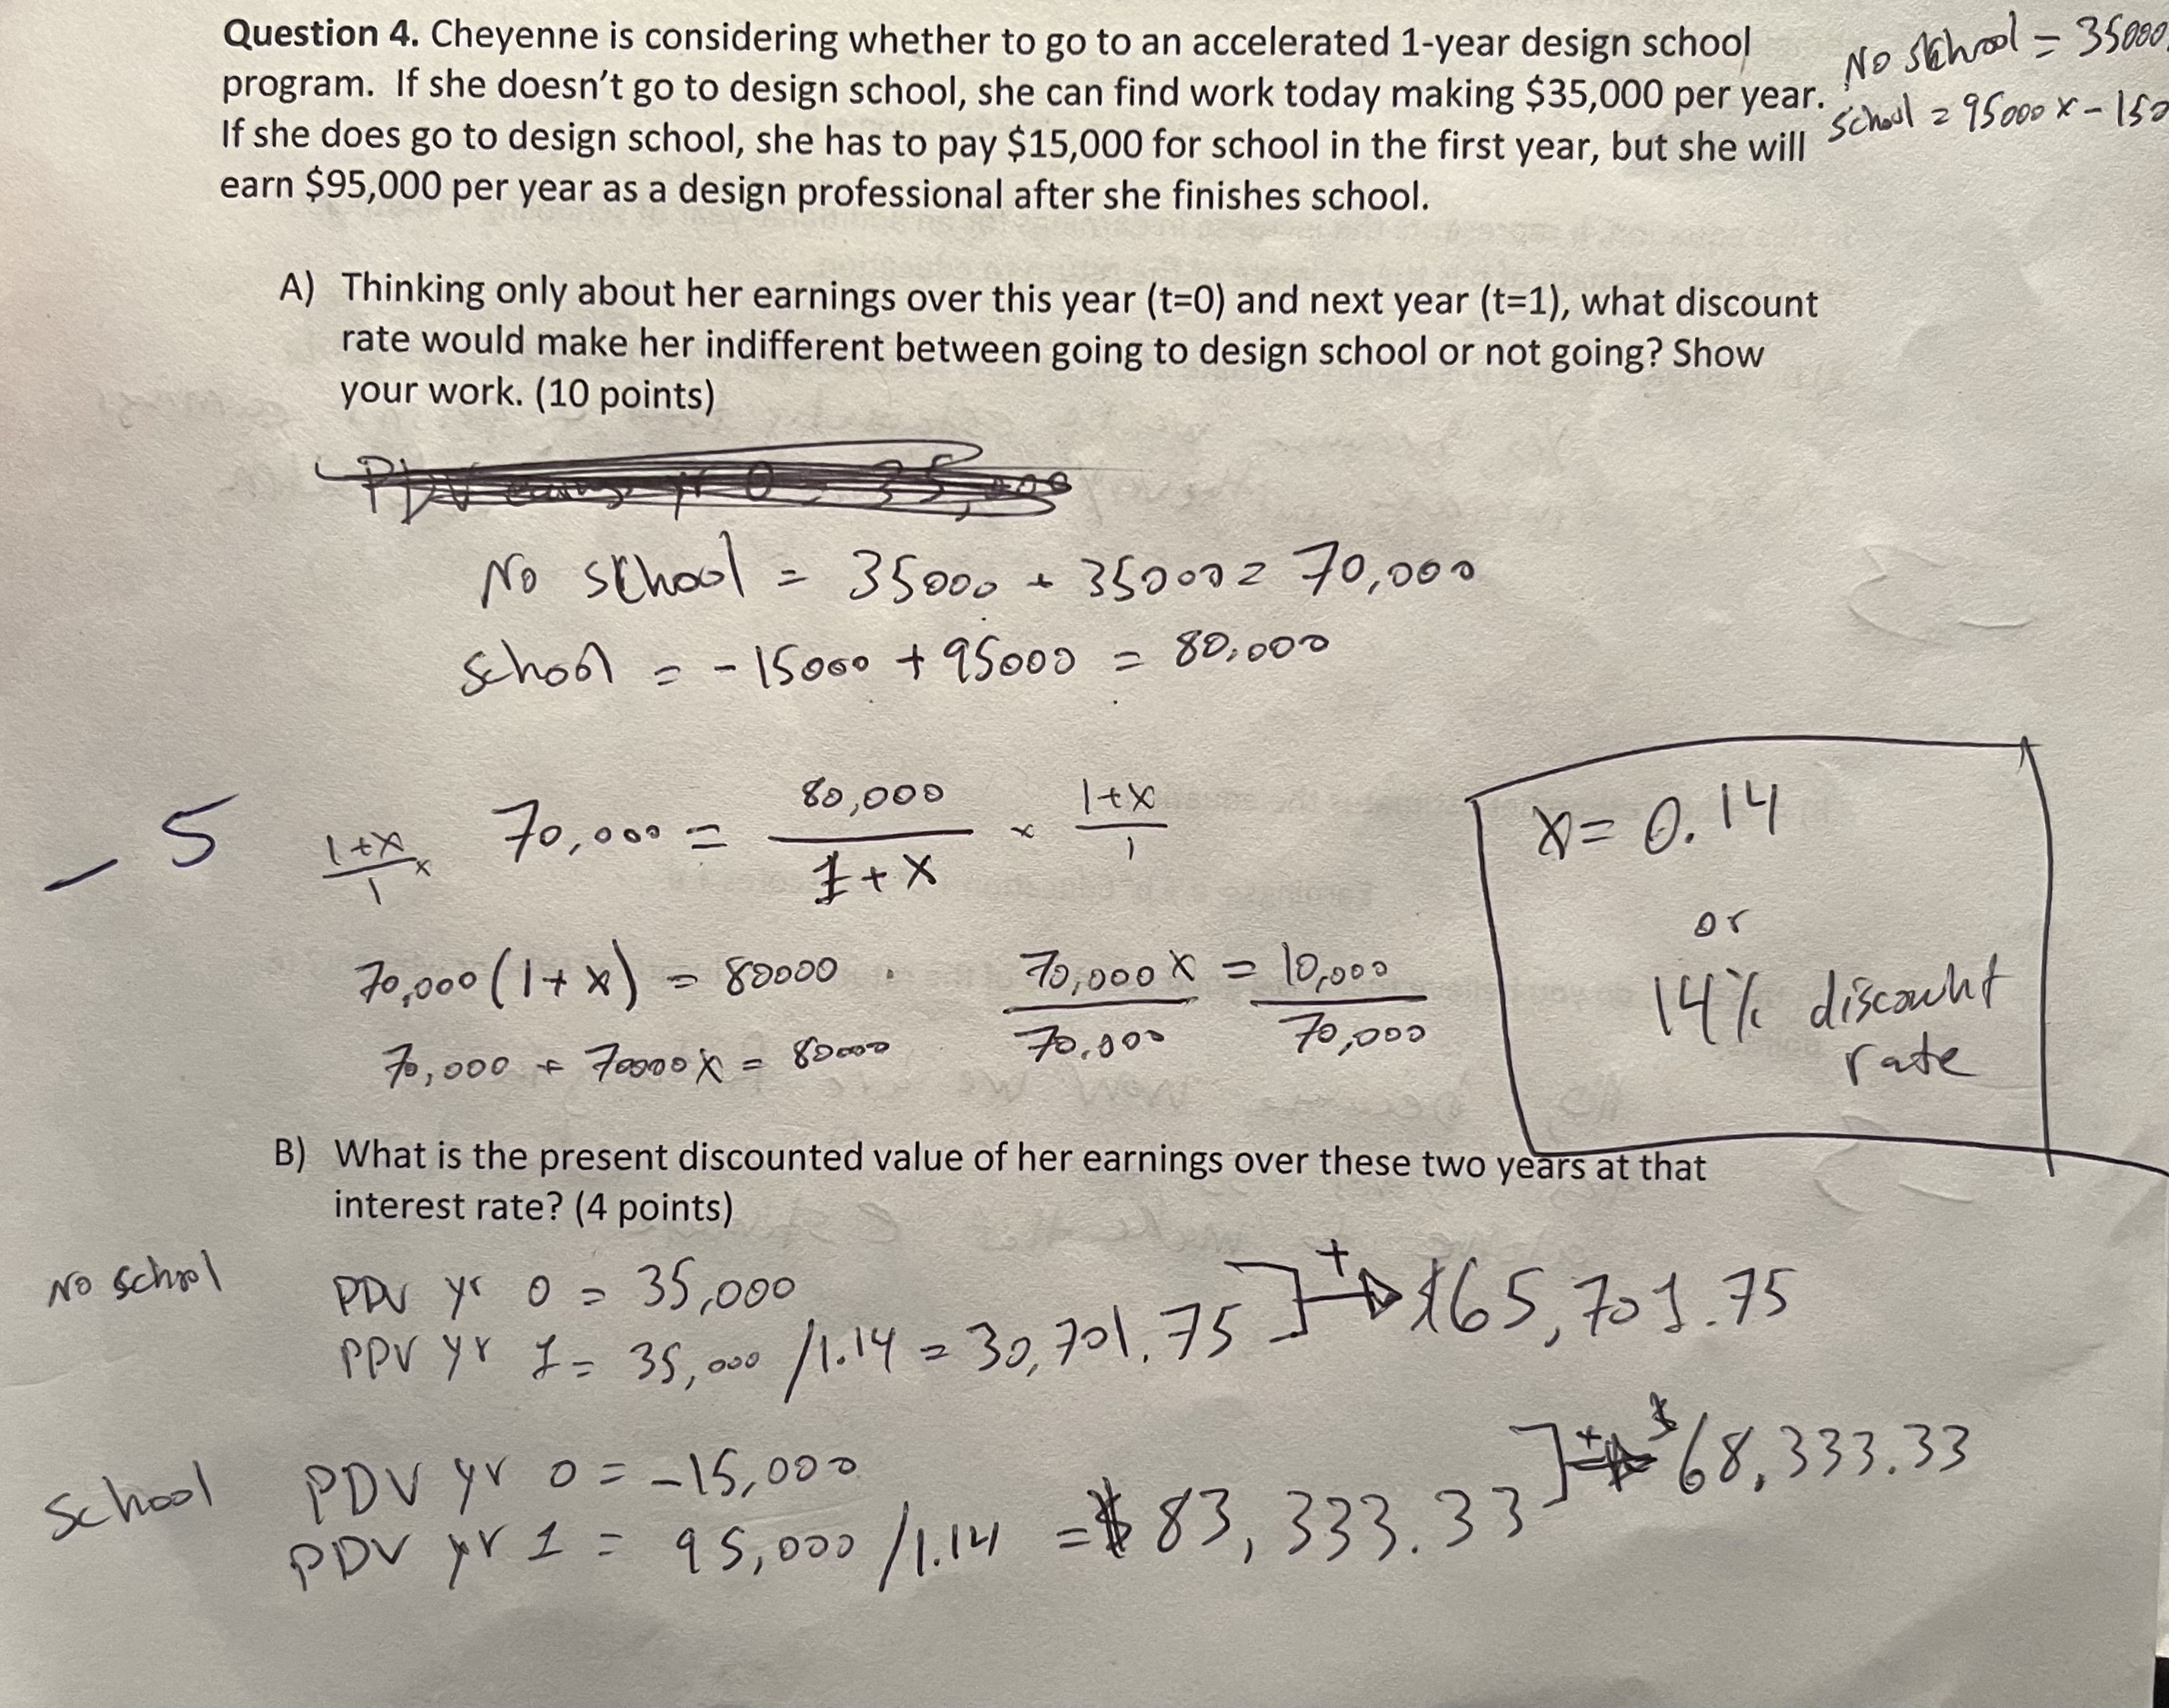 Question 4. Cheyenne is considering whether to go to an accelerated 1-year design school
program. If she doesn't go to design school, she can find work today making $35,000 per year.
If she does go to design school, she has to pay $15,000 for school in the first year, but she will
earn $95,000 per year as a design professional after she finishes school.
No school = 35000
School = 95000x - 150
A) Thinking only about her earnings over this year (t=0) and next year (t=1), what discount
rate would make her indifferent between going to design school or not going? Show
your work. (10 points)
No school = 35000 + 35000 = 70,000
School = -15000 + 95000 = 80,000
- 5
1+x/1 × 70,000 = 80,000/1+x × 1+x/1
70,000(1+x) = 80000
70,000 + 70000x = 80000
70,000x/70,000 = 10,000/70,000
x = 0.14
or
14% discount
rate
B) What is the present discounted value of her earnings over these two years at that
interest rate? (4 points)
No school
PDV yr 0 = 35,000
PDV yr 1 = 35,000/1.14 = 30,701.75
+ $65,701.75
School
PDV yr 0 = -15,000
PDV yr 1 = 95,000/1.14 = $83,333.33
+ $68,333.33